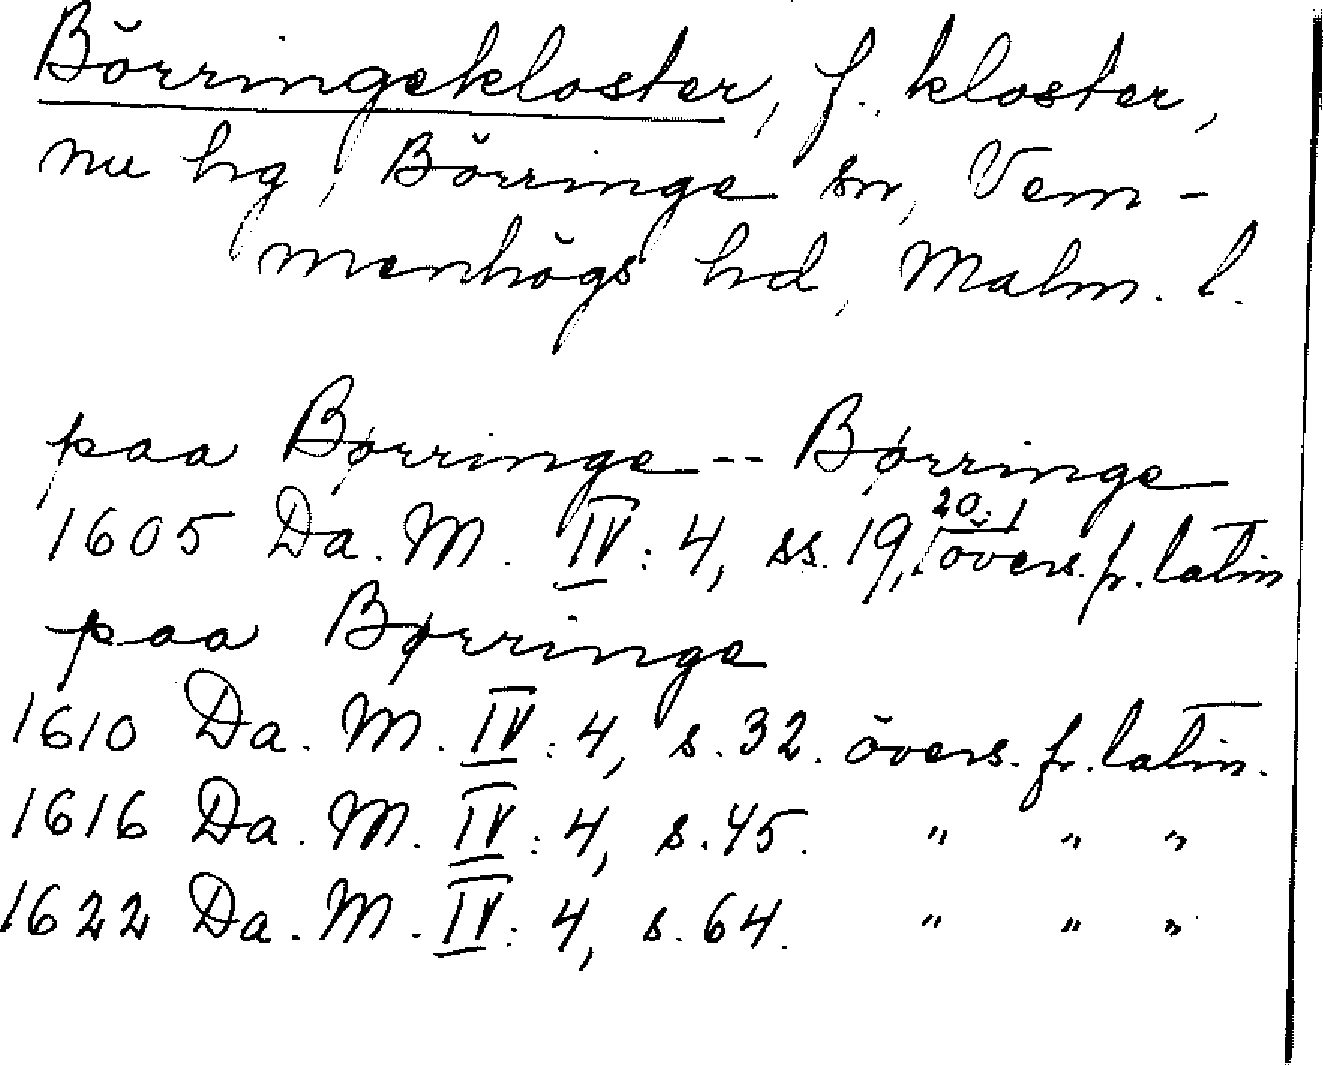 Börringekloster, f. kloster,
nu hg, Börringe sn, Vem-
menhögs hd, Malm. l.
paa Børringe -- Børringe
1605 Da. M. IV: 4, ss. 19, 20. övers. fr. latin
paa Børringe
1610 Da. M. IV: 4, s. 32. övers. fr. latin.
1616 Da. M. IV: 4, s. 45. " " "
1622 Da. M. IV: 4, s. 64. " " "